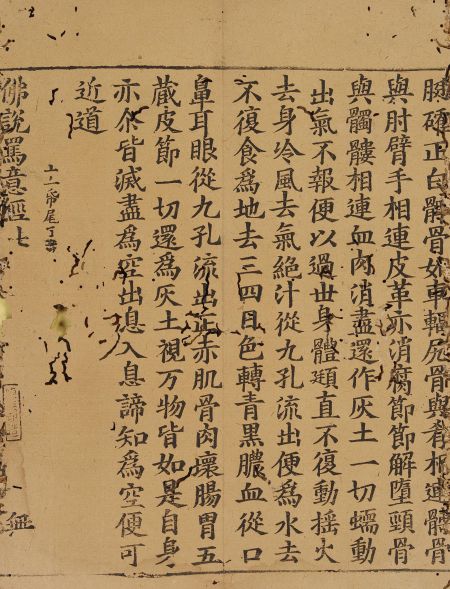 正白髖骨如車輻尻骨與脊相連髖骨
與肘臂手相連皮革亦消腐節節解墮頸骨
與髑髏相連血肉消盡還作灰土一切蠕動
出氣不報便以過世身體直不復動搖火
去身冷風去氣絕汁從九孔流出便爲水去
不復食爲地去三四日色轉青黑膿血從口
鼻耳眼從九孔流出正赤肌骨肉壞腸胃五
蔵皮節一切還爲灰土視万物皆如是自身
亦尒皆滅盡爲空出息入息諦知爲空便可
近道
十二帋尾丁
佛說罵意經 七